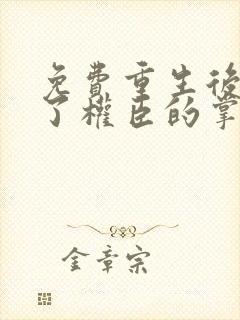 免費重生後
了權臣的掌
金章宗